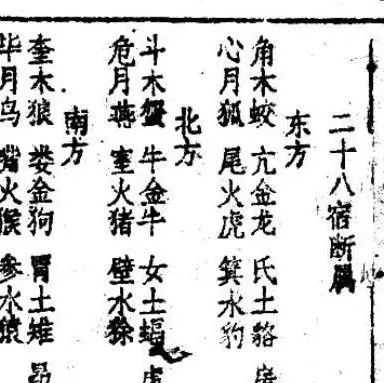 二十八宿断属
东方
角木蛟 亢金龙 氏土貉 房
心月狐 尾火虎 箕水豹
北方
斗木蟹 牛金牛 女土蝠
危月燕 室火猪 壁水
南方
奎木狼 娄金狗 胃土雉 昴
毕月乌 觜火猴 参水猿